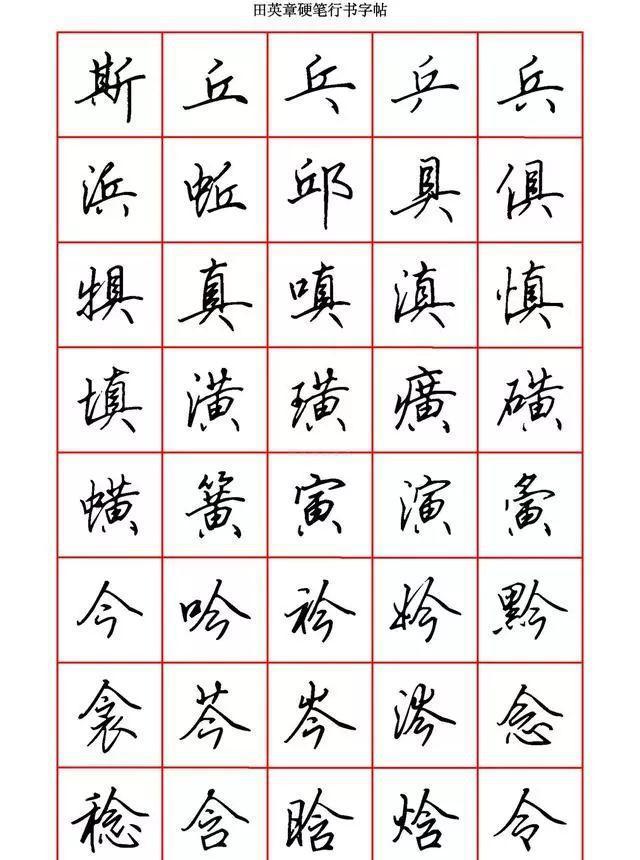 田英章硬笔行书字帖
斯 丘 乓 乒 兵
浜 蚯 邱 具 俱
犋 真 嗔 滇 慎
填 潢 璜 癀 磺
蟥 簧 寅 演 夤
今 吟 衿 妗 黔
衾 芩 岑 涔 念
稔 含 晗 焓 令